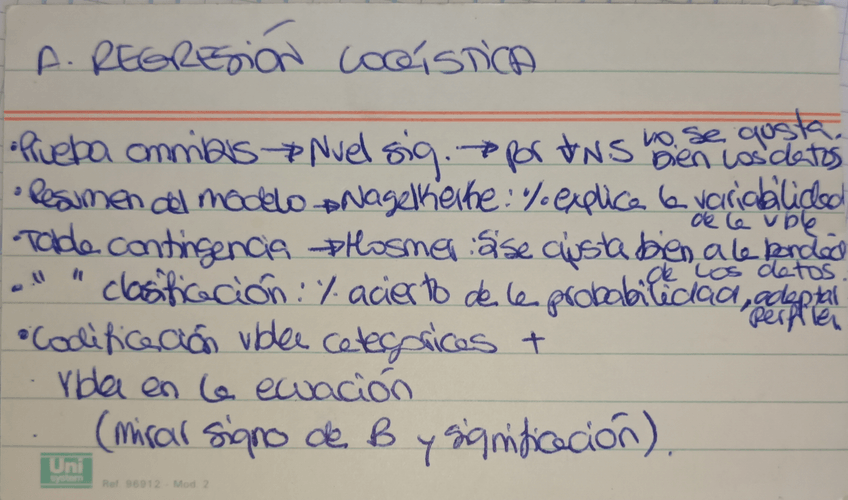 A. REGRESIÓN LOGÍSTICA
• Prueba omnibus → Nivel sig. → por ∀ NS no se ajusta bien los datos
• Resumen del modelo → Nagelkerke: % explica la variabilidad de la vble
• Tabla contingencia → Hosmer: si se ajusta bien a la bondad de los datos.
• " " clasificación: % acierto de la probabilidad, adaptar perfiles
• Codificación vbles categóricas +
vbles en la ecuación
(mirar signo de B y significación).
Uni
system
Ref. 96912 - Mod. 2